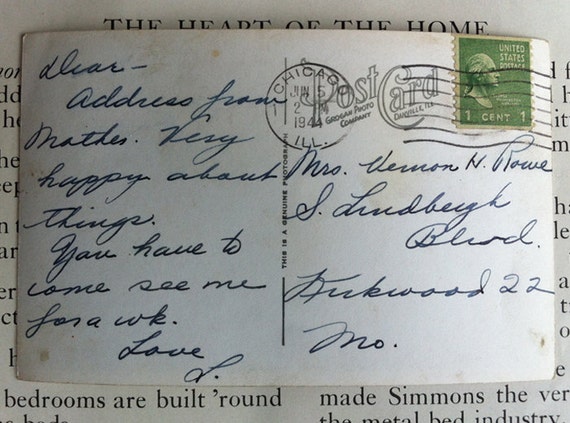 THE HEART OF THE HOME
Dear—
Address from
Mother. Very
happy about
things.
You have to
come see me
for a wk.
Love
L.
THIS IS A GENUINE PHOTOGRAPH
CHICAGO
JUN 5
2 PM
1944
ILL.
Post Card
GROGAN PHOTO
COMPANY
DANVILLE, ILL.
UNITED
STATES
POSTAGE
1 CENT 1
Mrs. Vernon H. Rowe
S. Lindbergh
Blvd.
Kirkwood 22
Mo.
bedrooms are built 'round
made Simmons the ver
the metal bed industry.